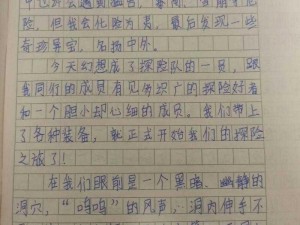 险，但我会化险为夷，最后发现一些
奇珍异宝，名扬中外。
今天幻想成了探险队的一员，跟
我同行的成员有见伤识广的探险好者
和一个胆小却心细的成员。我们带上
了各种装备，就正式开始我们的探险
之旅了！
在我们眼前是一个黑暗、幽静的
洞穴，“呜呜”的风声，洞内伸手不